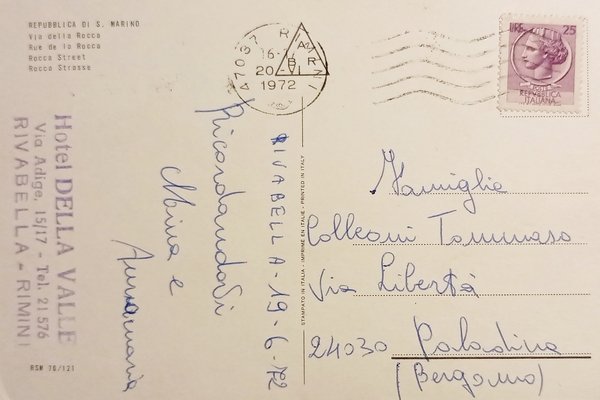 REPUBBLICA DI S. MARINO
Via della Rocca
Rue de la Rocca
Rocca Street
Rocca Strasse
Hotel DELLA VALLE
Via Adige, 15/17 - Tel. 21576
RIVABELLA - RIMINI
RSM 76/121
47037 RIMINI
20-
1972
LIRE 25
POSTE
REPUBBLICA
ITALIANA
RIVABELLA - 19-6-72
Ricordandovi
Mina e
Annamaria
STAMPATO IN ITALIA - IMPRIMÉ EN ITALIE - PRINTED IN ITALY
Famiglia
Colleoni Tommaso
Via Libertà
24030 Paladina
(Bergamo)